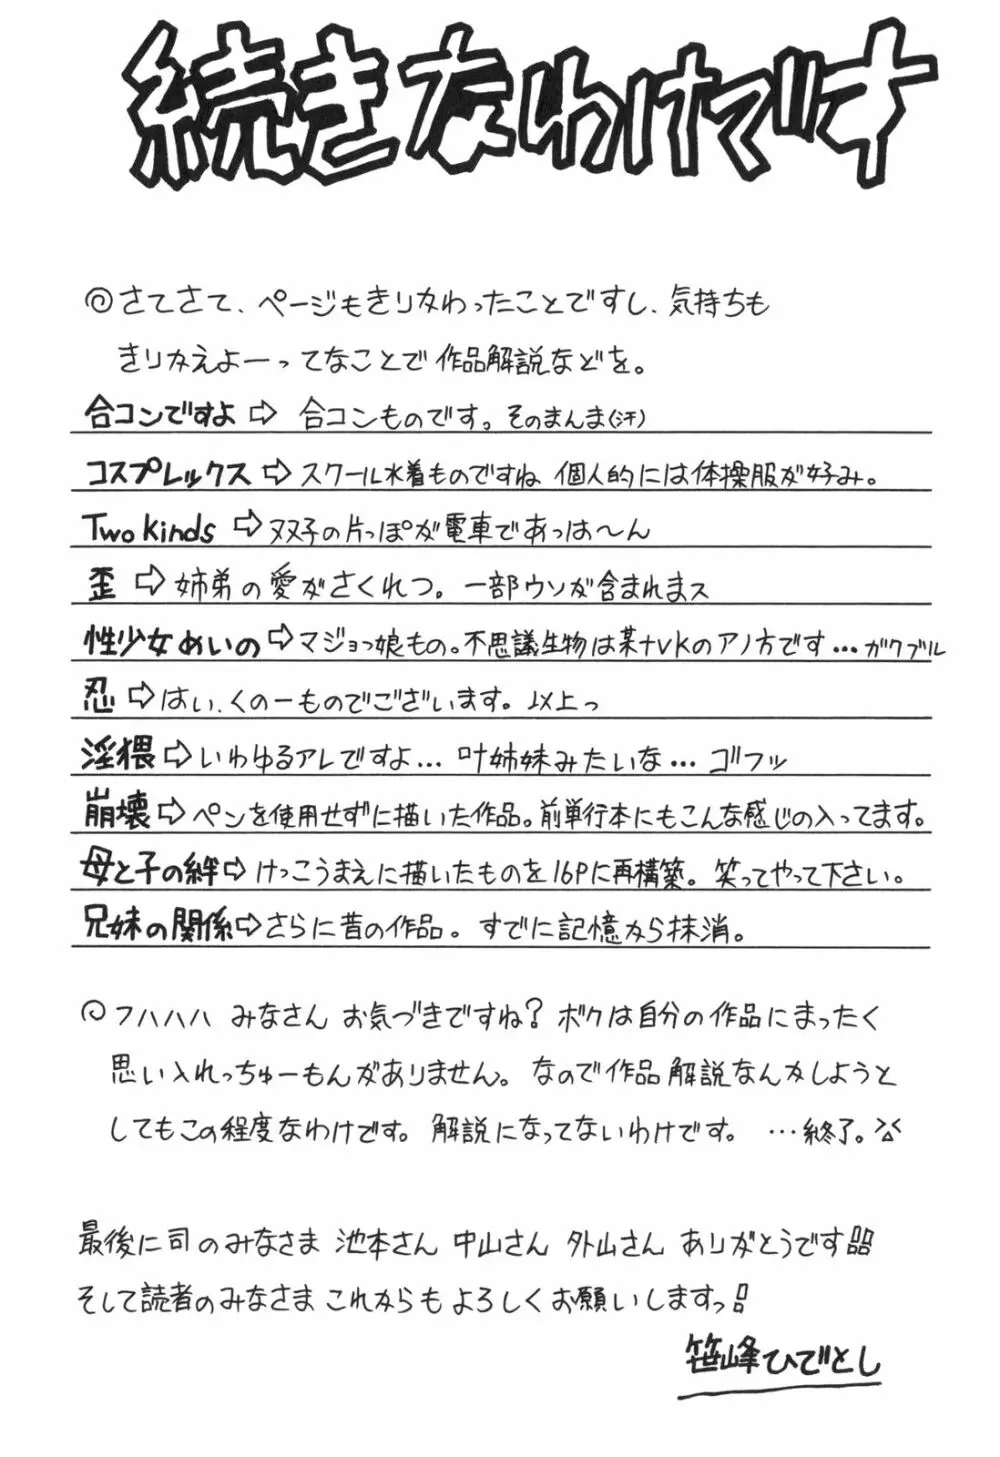 続きなわけです
さてさて、ページもきりかわったことですし、気持ちも
きりかえよーってなことで作品解説などを。
合コンですよ⇨ 合コンものです。そのまんま(汗)
コスプレックス⇨スクール水着ものですね 個人的には体操服が好み。
Two Kinds ⇨双子の片っぽが電車であっは〜ん
歪⇨姉弟の愛がさくれつ。一部ウソが含まれまス
性少女めいの⇨マジョっ娘もの。不思議生物は某ナVKのアノ方です…ガクブル
忍⇨はい、くの一ものでございます。以上っ
淫猥⇨いわゆるアレですよ… 叶姉妹みたいな… ゴフッ
崩壊⇨ペンを使用せずに描いた作品。前単行本にもこんな感じの入ってます。
母と子の絆⇨けっこうまえに描いたものを16Pに再構築。笑ってやって下さい。
兄妹の関係⇨さらに昔の作品。すでに記憶から抹消。
フハハハ みなさん お気づきですね?ボクは自分の作品にまったく
思い入れっちゅーもんがありません。なので作品解説なんかしようと
してもこの程度なわけです。解説になってないわけです。 …終了。
最後に司のみなさま 池本さん 中山さん 外山さん ありがとうです!!
そして読者のみなさま これからもよろしくお願いしますっ!
笹峰ひでとし